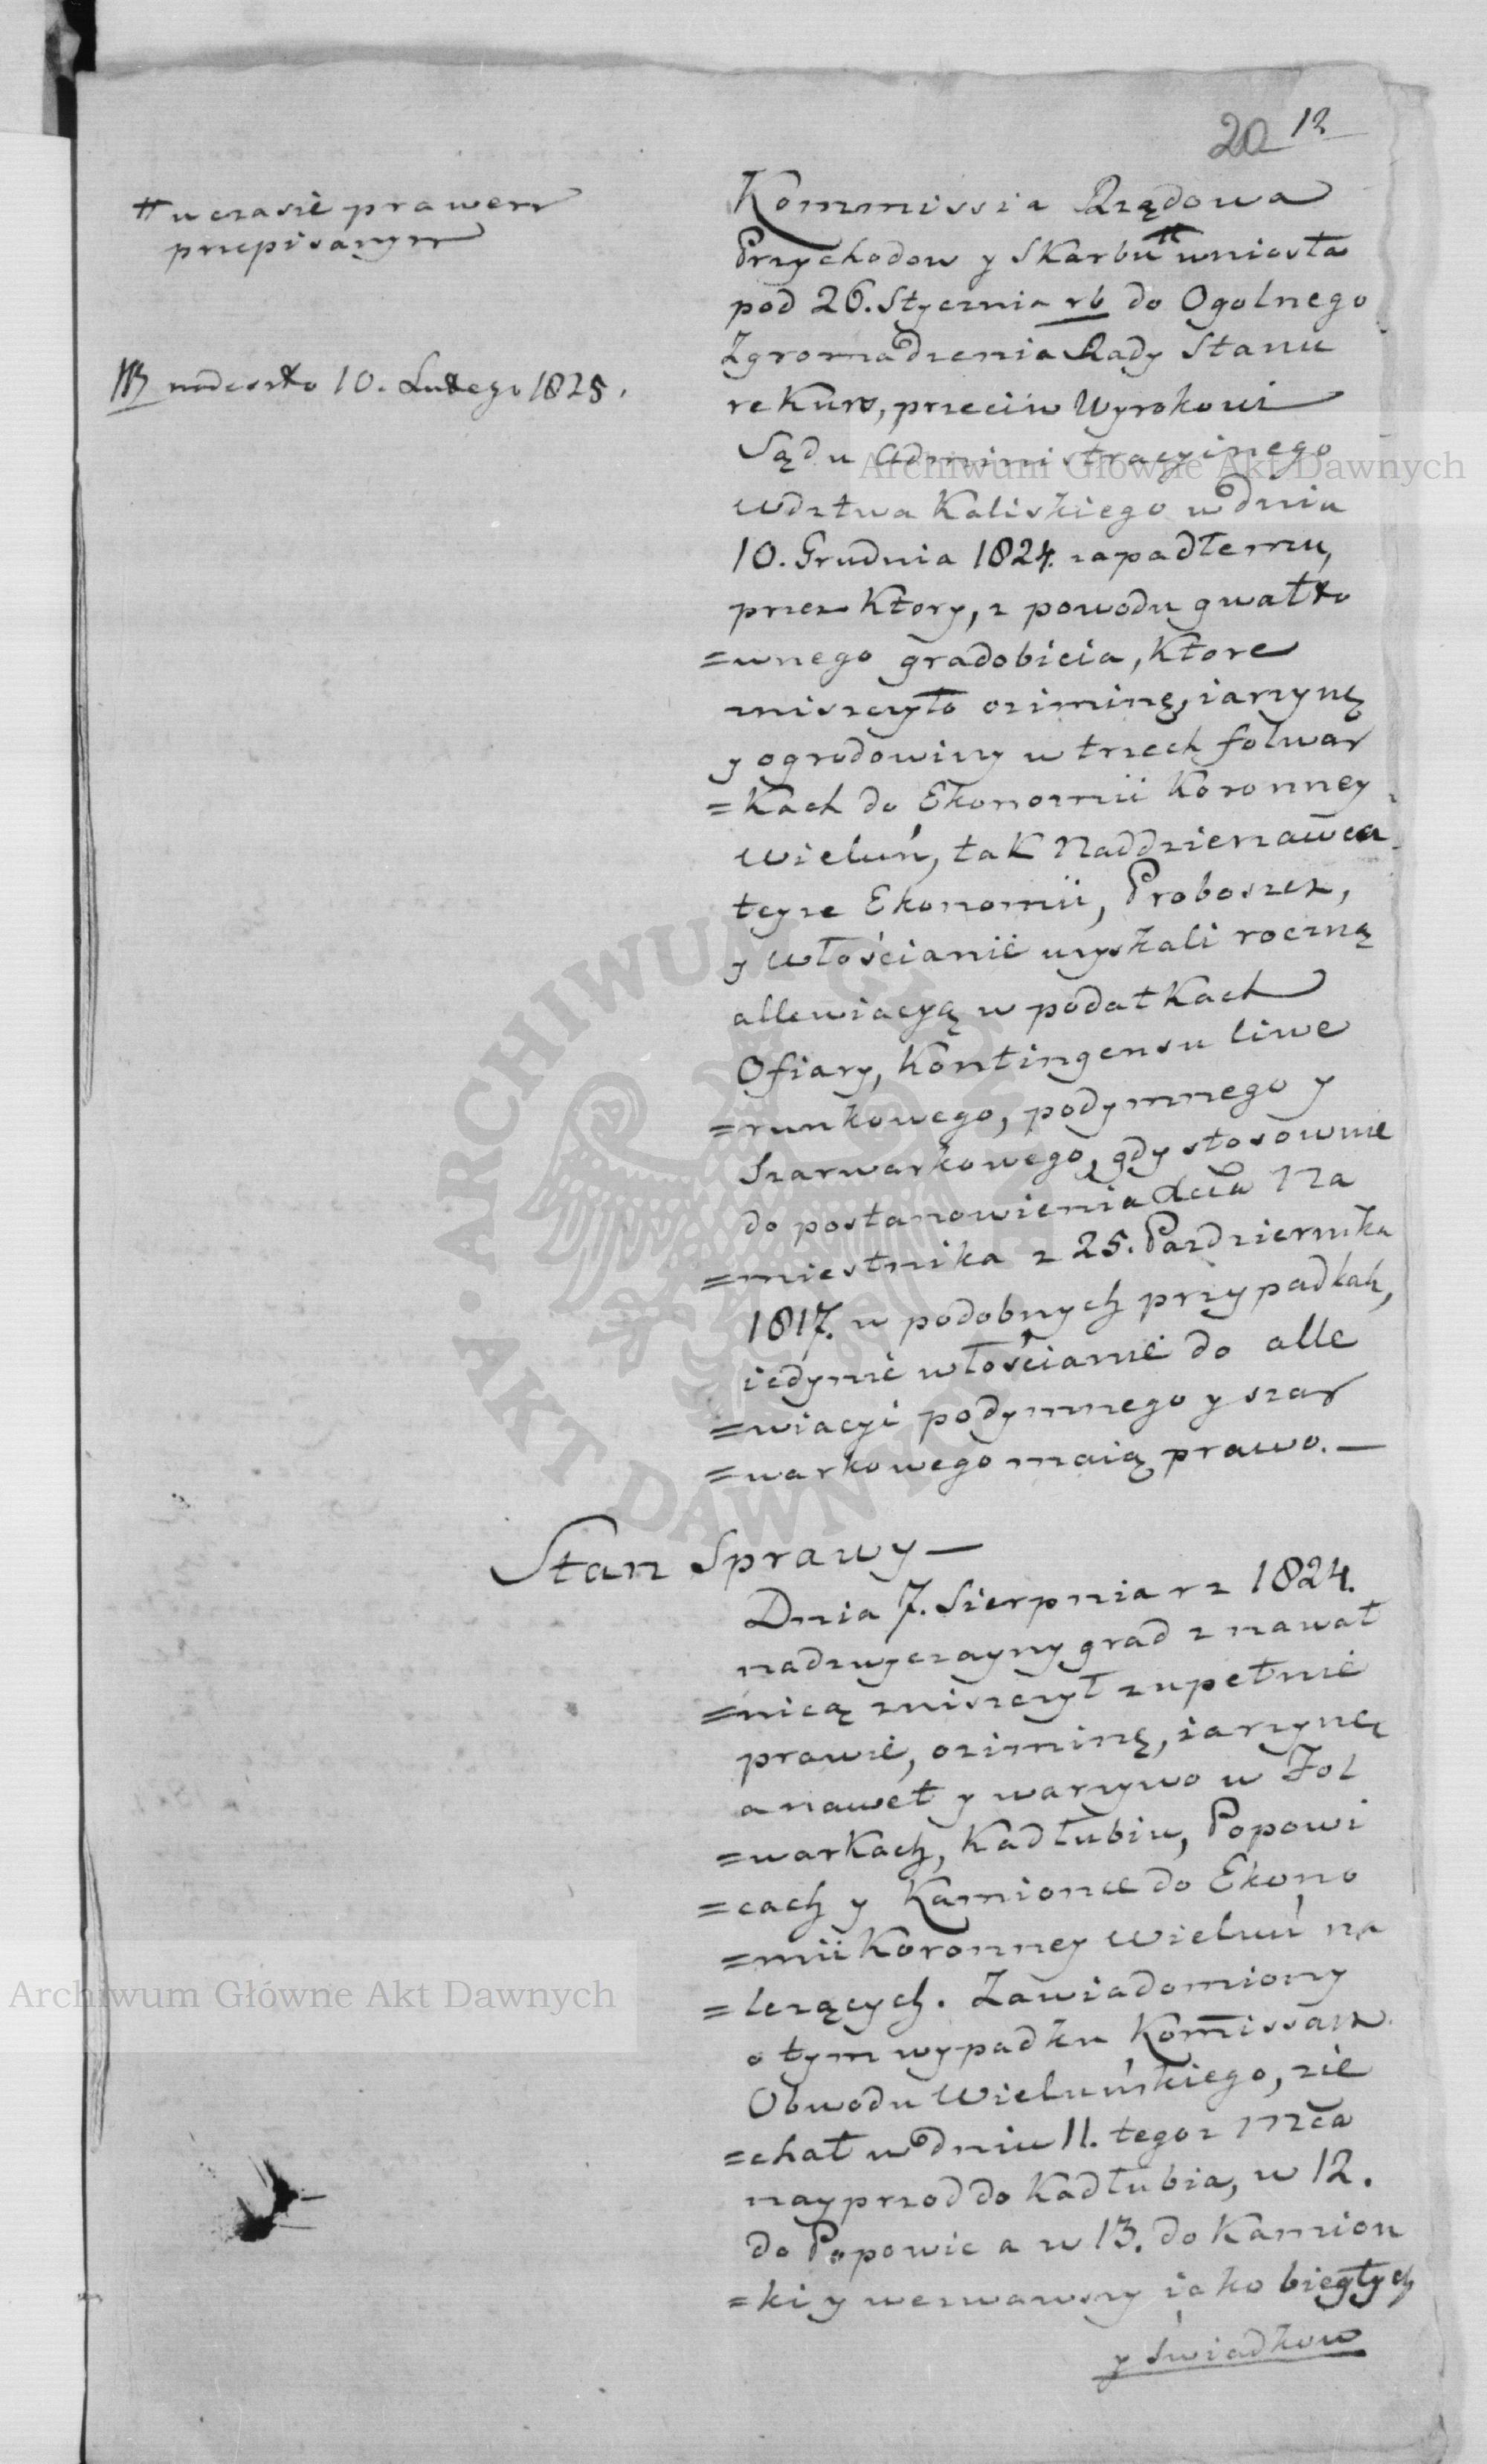 20 12
# w czasie prawem
przepisanym
NB nadeszło 10. Lutego 1825.
Kommissia Rządowa
Przychodow y Skarbu # wniosła
pod 26. Stycznia rb do Ogolnego
Zgromadzenia Rady Stanu
rekurs, przeciw Wyrokowi
Sądu Administracyinego
Wdztwa Kaliskiego w dniu
10. Grudnia 1824. zapadłemu,
przez Ktory, z powodu gwałto
=wnego gradobicia, Ktore
zniszczyło oziminę, iarzynę
y ogrodowiny w trzech folwar
=kach do Ekonomii Koronney
Wieluń, tak Naddzierzawca
teyze Ekonomii, Proboszcz,
y Włościanie uzyskali roczną
allewiacyą w podatkach
Ofiary, Kontingensu liwe
=runkowego, podymnego y
Szarwarkowego, gdy stosownie
do postanowienia Xcia Na
=miestnika z 25. Pazdziernika
1817. w podobnych przypadkah,
iedynie włościanie do alle
=wiacyi podymnego y szar
=warkowego maią prawo. —
Stan Sprawy —
Dnia 7. Sierpnia rz 1824.
nadzwyczayny grad z nawał
=nicą zniszczył zupełnie
prawie, oziminę, iarzynę
a nawet y warzywo w Fol
=warkach, Kadłubiu, Popowi
=cach y Kamionce do Ekono
=mii Koronney Wieluń na
=lezących. Zawiadomiony
o tym wypadku Komissarz
Obwodu Wieluńskiego, zie
=chał w dniu 11. tegoz Mca
nayprzod do Kadłubia, w 12.
do Popowic a w 13. do Kamion
=ki y wezwawszy iako biegłych
y świadkow
Archiwum Główne Akt Dawnych
Archiwum Główne Akt Dawnych
ARCHIWUM GŁÓWNE • AKT DAWNYCH •